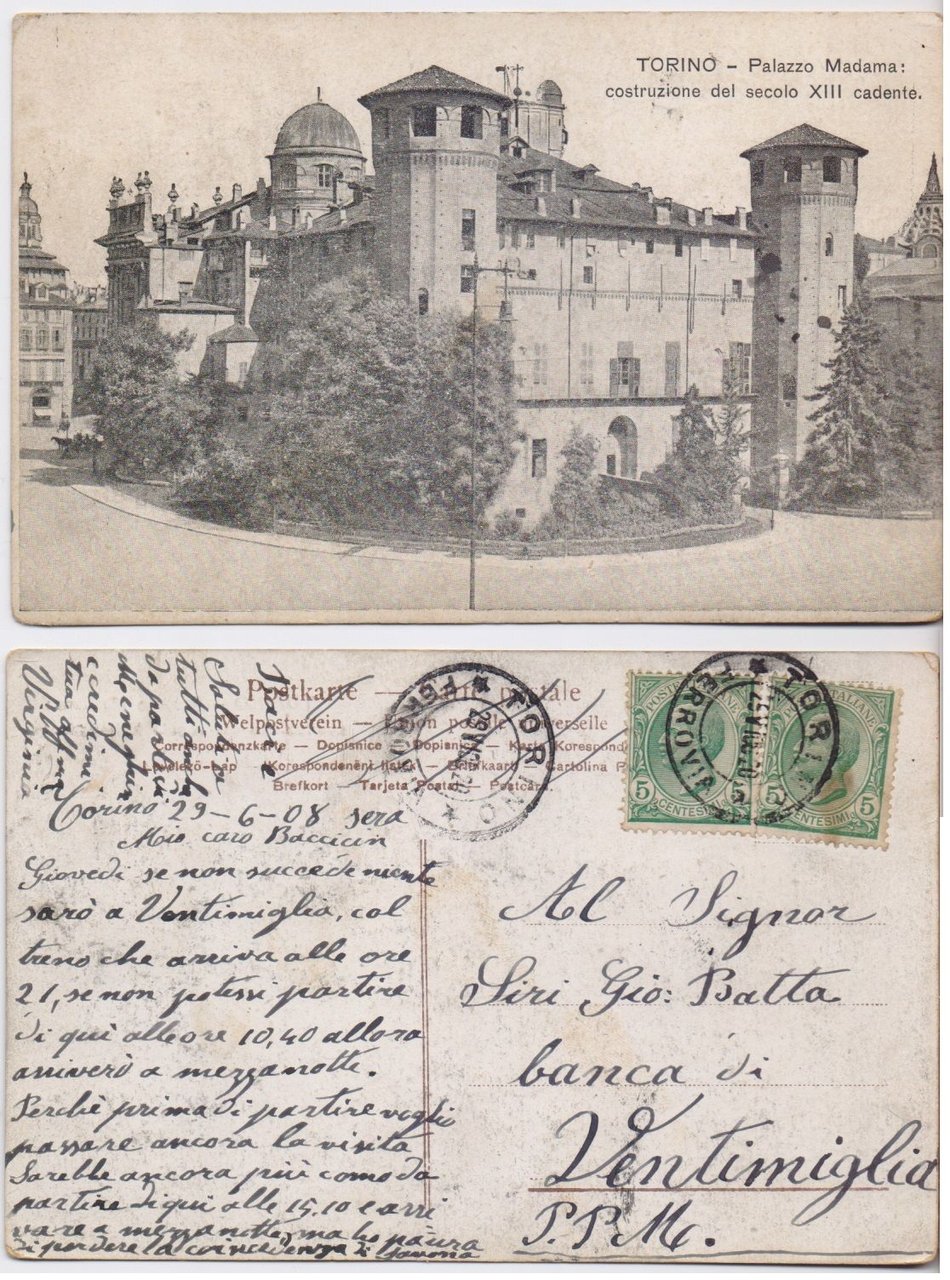 TORINO – Palazzo Madama:
costruzione del secolo XIII cadente.
Postkarte — Carte postale
Welpostverein — Union postale universelle
Correspondenzkarte – Dopisnice – Dopisnica – Karta Korespond
Levelező-Lap – Korespondenční lístek – Briefkaart – Cartolina P
Brefkort – Tarjeta Postal – Postcard.
TORINO
FERROVIA
TORINO
FERROVIA
POSTE ITALIANE
5 CENTESIMI 5
POSTE ITALIANE
5 CENTESIMI 5
Torino, 29-6-08 sera
Mio caro Baccicin
Giovedi se non succede niente
sarò a Ventimiglia, col
treno che arriva alle ore
21, se non potessi partire
di qui alle ore 10,40 allora
arriverò a mezzanotte.
Perchè prima di partire voglio
passare ancora la visita
Sarebbe ancora più comodo
partire di qui alle 15.10 e arri
vare a mezzanotte, ma ho paura
di perdere la coincidenza di Savona
Saluta
tutti anche
da parte di
e credimi
tua aff.ma
Virginia
Al Signor
Siri Gio: Batta
banca di
Ventimiglia
P.P.M.